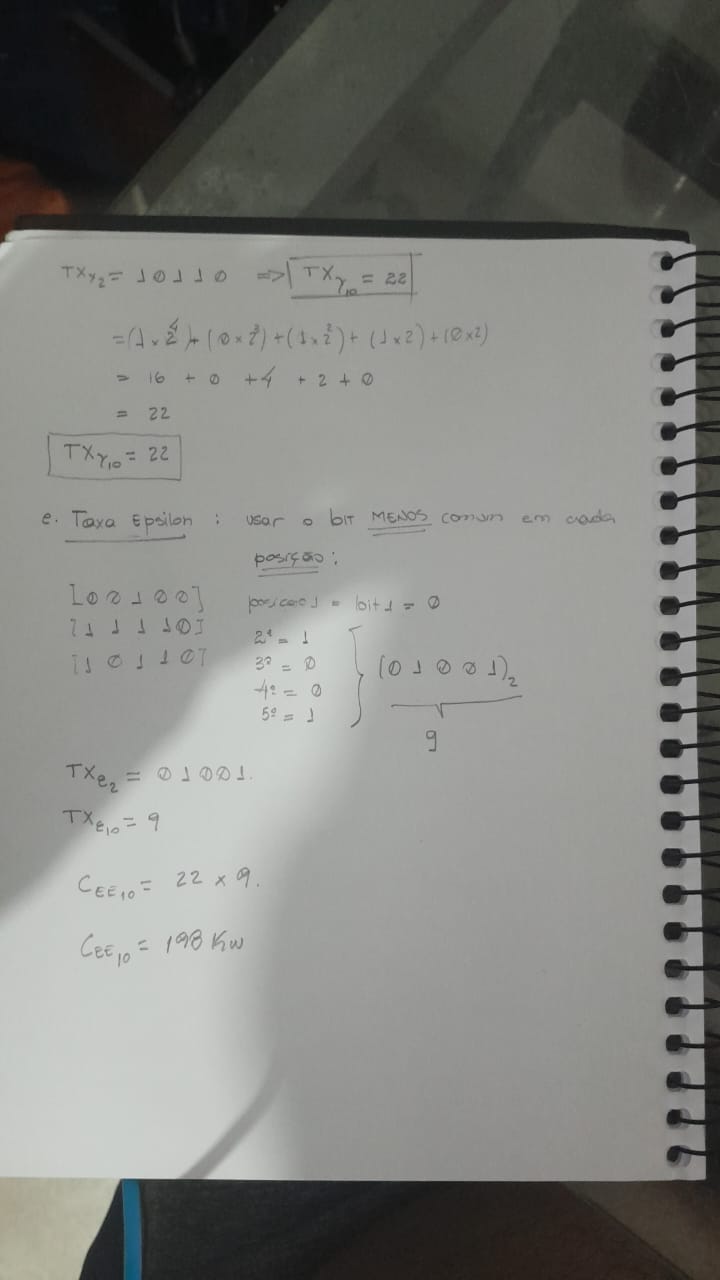 TXγ₂ = 10110 => TXγ₁₀ = 22
= (1 x 2⁴) + (0 x 2³) + (1 x 2²) + (1 x 2) + (0 x 2)
= 16 + 0 + 4 + 2 + 0
= 22
TXγ₁₀ = 22
e. Taxa Epsilon : usar o bit MENOS comum em cada
posição:
[00100]
[11110]
[10110]
posicao 1 = bit 1 = 0
2ª = 1
3ª = 0
4ª = 0
5ª = 1
(01001)₂
9
TXε₂ = 01001.
TXε₁₀ = 9
CEE₁₀ = 22 x 9.
CEE₁₀ = 198 Kw